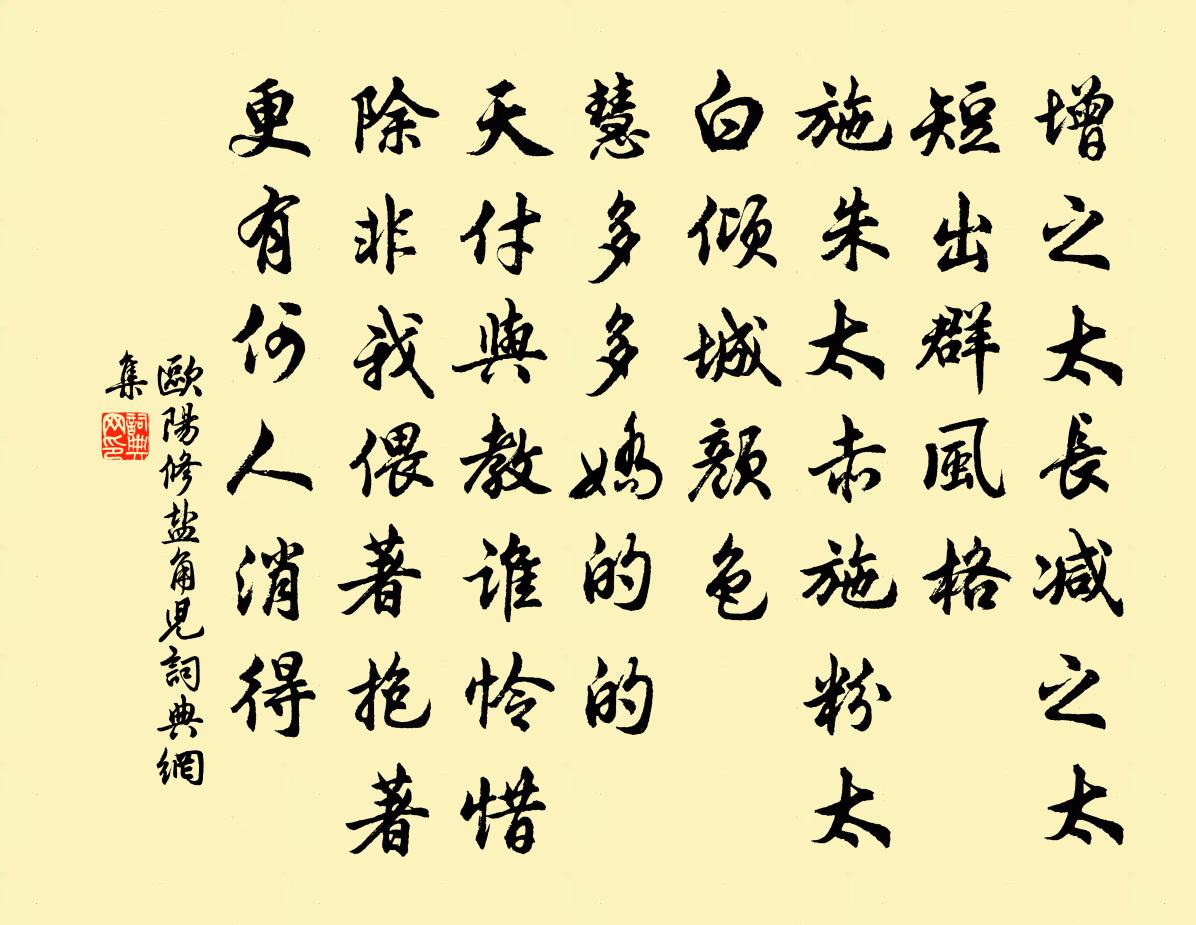 增之太長减之太
短出群風格
施朱太赤施粉太
白倾城顏色
慧多多嬌的的
天付與教誰怜惜
除非我偎著抱著
更有何人消得
歐陽修盐角兒詞典網
集
詞典
网印